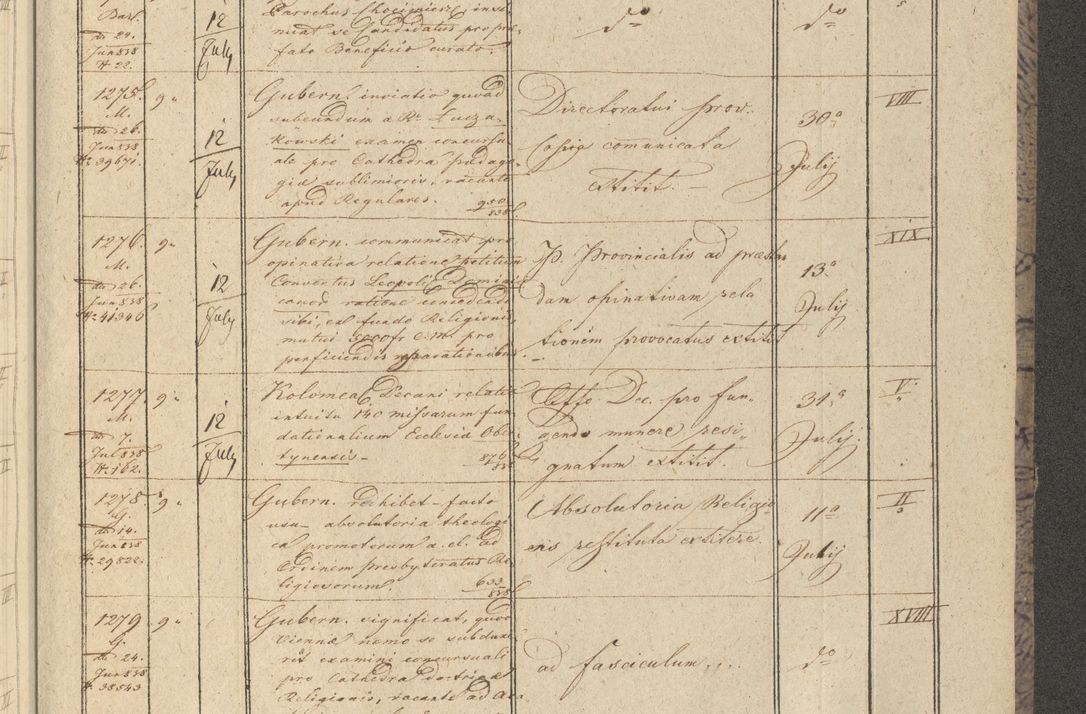 Bart.
dō 29.
Jun 838
N. 22.
12
July
Parochus Chocimiersz. inve-
niat se Candidatus pro præ-
fato Beneficio curato.
dº
dº
1275.
M.
dō 26.
Jun 838
Nr. 39671.
9a
12
July
Gubern. inviatio quoad
subeundum a Rº Łucza-
kowski examen concursu-
ale pro Cathedra pædago-
giæ sublimioris, vacante
apud Regulares.
950/838.
Directoratui prov.
copia comunicata
extitit. —
30a
Julij
VIII
1276.
M.
dō 26.
Jun 838
Nr. 41346
9a
12
July
Gubern. communicat pro
opinativa relatione petitum
Conventus Leopoli Domini-
canor ratione concedendi
sibi, ex fundo Religionis,
mutui 5000 fr C.M. pro
perficiendis reparationibus.
P. Provincialis ad præstan
dam opinativam rela
tionem provocatus extitit
13a
Julij
XIX
1277.
M.
dō 7.
Jul 838
N. 162.
9a
12
July
Kolomea Decani relatio
intuitu 140 missarum fun
dationalium Ecclesiæ Ober-
tynensis -
876/838
Off Dec. pro fun-
gendo munere resi-
gnatum extitit.
31a
Julij.
V.
1278.
G.
dō 14.
Jun 838
N. 29822.
9a
Gubern. rehibet - facto
usu - absolutoria theologi
ca promotorum a. el. ad
Ordinem presbyteratus Re-
ligiosorum.
633/838
Absolutoria Religio
sis restituta extitere.
11a
Julij
II
1279
G.
dō 24.
Jun 838
N. 38543
9a
Gubern. significat, quod
Viennæ nemo se subduxe
rit examini concursuali
pro Cathedra doctrinæ
Religionis, vacante ad Aca
ad fasciculum...
dº
XVIII